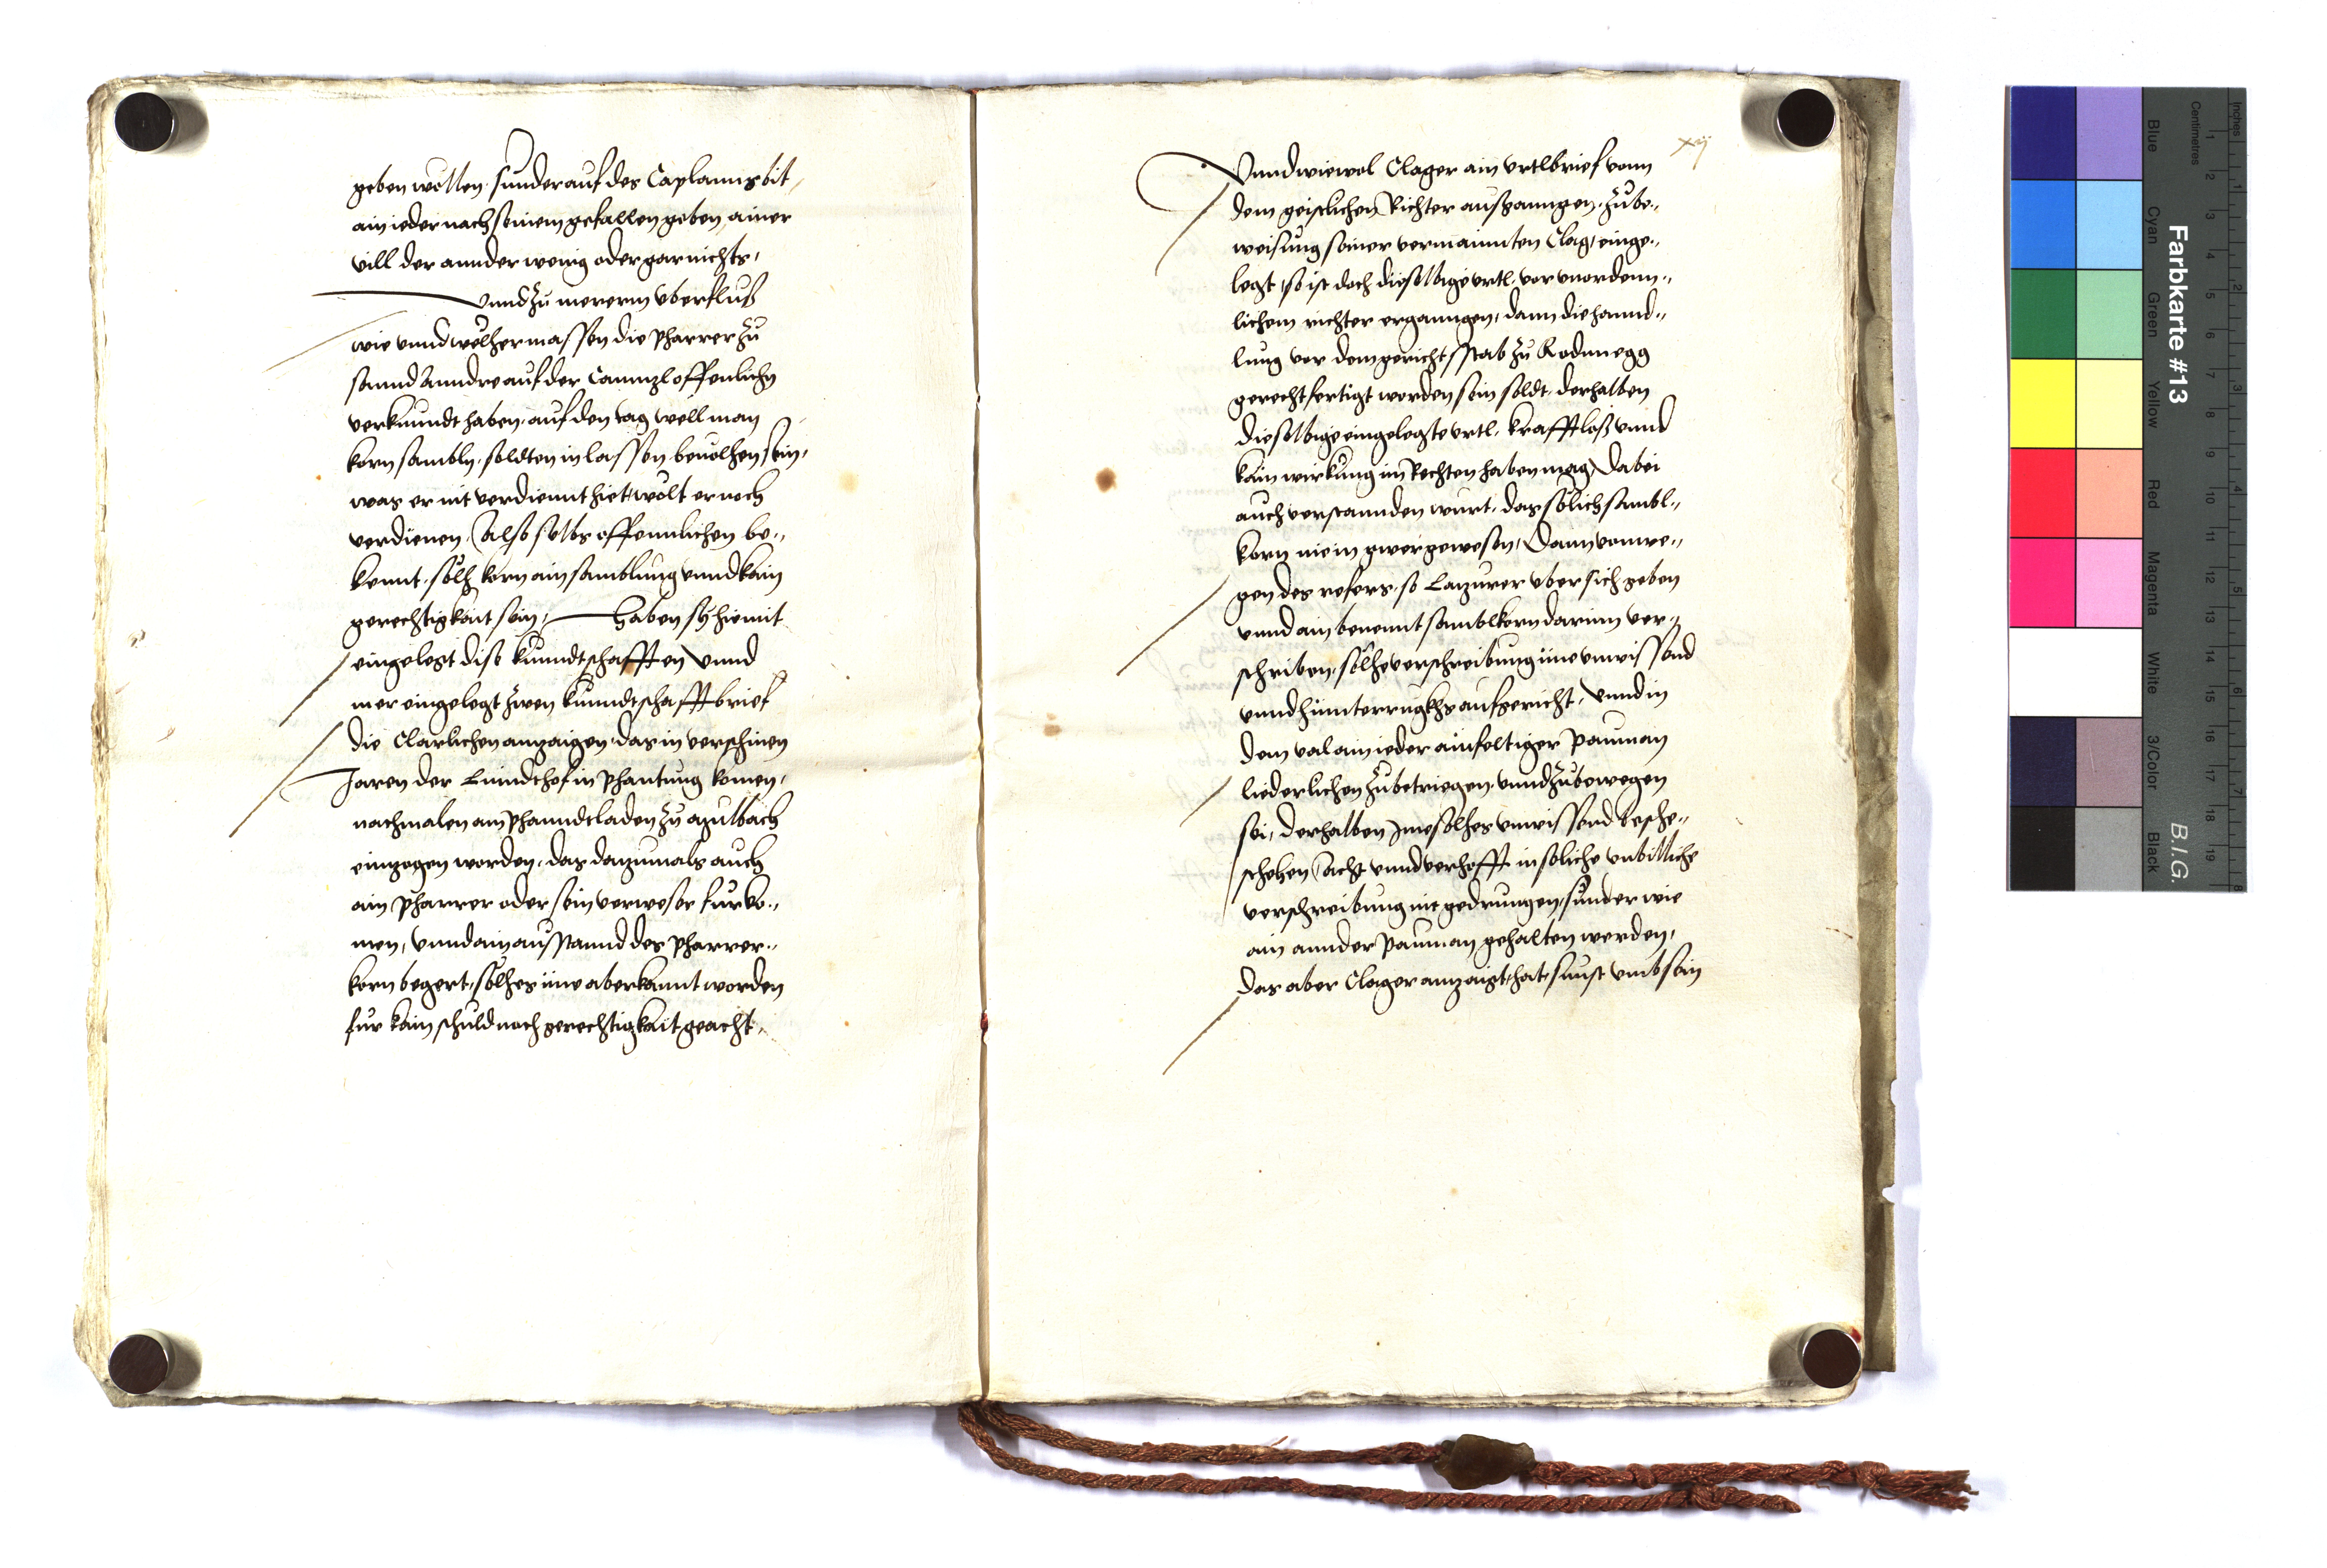 geben wöllen. sunder auf des Caplanns bit,
ain ieder nach seinem gefallen geben, ainer
vill der annder wenig oder gar nichts,
vnnd zu mererm vberfluß
wie vnnd welhermassen die pharrer zu
sannd Anndre auf der Cannzl offenlichn
verkunndt haben. auf den tag well man
korn sambln, soldten in lassen beuolhen sein,
was er nit verdiennt hiet, wölt er noch
verdienen. Also selbs offennlichen be„
kennt. sölh korn ain samblung vnnd kain
gerechtigkait sein, haben sy hiemit
eingelegt dise kunndtschafften vnnd
mer eingelegt zwen kunndtschafftbrief
die Clarlichen anzaigen, das in verschinen
Jaren der Lunndthof in phantung komen,
nachmalen am phanndtladen zu
einzogen worden, das dazumals auch
ain pharrer oder sein verweser furko„
men, vnnd ain ausstannd des pharrer„
korn begert, sölhes ime aberkannt worden
fur kain schuld noch gerechtigkait geacht,
xij
Vnnd wiewol Clager ain vrtlbrief vonn
dem geistlichen Richter ausganngen. zu be„
weisung seiner vermainnten Clag, einge„
legt, so ist doch dieselbige vrtl, vor vnordenn„
lichem richter erganngen, dann die hannd„
lung vor dem gerichtsstab zu Rodnnegg
gerechtfertigt worden sein soldt, derhalben
dieselbige eingelegte vrtl, krafftloß vnnd
kain wirkung im Rechten haben mag, Dabei
auch verstannden wurt. das sölich sambl„
korn nie in gwer gewesen, Dann von we„
gen des refers, so Lazurer vber sich geben
vnnd ain benennt samblkorn darinn ver„
schriben, sölhe verschreibung ime vnwissend
vnnd hinnterrugkhs aufgericht, vnnd in
dem val ain ieder ainfeltiger pauman
liederlichen zu betriegen. vnnd zu bewegen
sei, derhalben Ime solhes vnwissend besche„
schehen Acht vnnd verhofft in soliche vnbilliche
verschreibung nit gedrungen, sunder wie
ain annder pauman gehalten werden,
Das aber Clager anzaigt hat, sunst vmb sein
Farbkarte #13
B.I.G.
Inches
Centimetres
Blue
Cyan
Green
Yellow
Red
Magenta
White
3/Color
Black